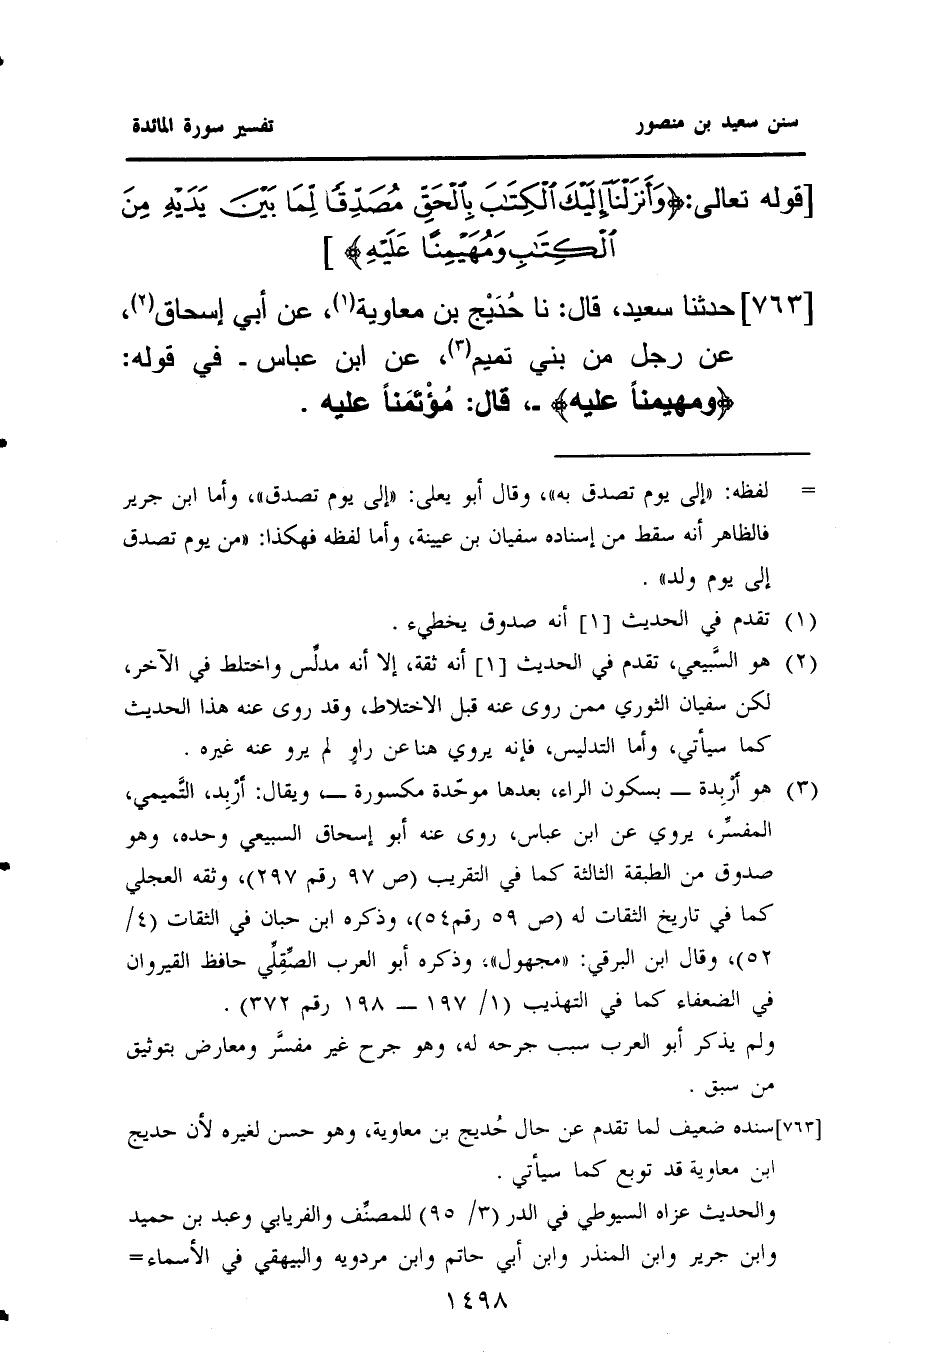 سنن سعيد بن منصور تفسير سورة المائدة
[قوله تعالى: ﴿وَأَنزَلْنَآ إِلَيْكَ ٱلْكِتَٰبَ بِٱلْحَقِّ مُصَدِّقًا لِّمَا بَيْنَ يَدَيْهِ مِنَ
ٱلْكِتَٰبِ وَمُهَيْمِنًا عَلَيْهِ﴾ ]
[٧٦٣] حدثنا سعيد، قال: نا حُدَيْج بن معاوية(١)، عن أبي إسحاق(٢)،
عن رجل من بني تميم(٣)، عن ابن عباس ـ في قوله:
﴿ومهيمناً عليه﴾ ـ، قال: مُؤْتَمَناً عليه .
= لفظه: «إلى يوم تصدق به»، وقال أبو يعلى: «إلى يوم تصدق»، وأما ابن جرير
فالظاهر أنه سقط من إسناده سفيان بن عيينة، وأما لفظه فهكذا: «من يوم تصدق
إلى يوم ولد» .
(١) تقدم في الحديث [١] أنه صدوق يخطيء .
(٢) هو السَّبيعي، تقدم في الحديث [١] أنه ثقة، إلا أنه مدلِّس واختلط في الآخر،
لكن سفيان الثوري ممن روى عنه قبل الاختلاط، وقد روى عنه هذا الحديث
كما سيأتي، وأما التدليس، فإنه يروي هنا عن راوٍ لم يرو عنه غيره .
(٣) هو أَرْبِدة ــ بسكون الراء، بعدها موحّدة مكسورة ــ، ويقال: أَرْبِد، التَّميمي،
المفسِّر، يروي عن ابن عباس، روى عنه أبو إسحاق السبيعي وحده، وهو
صدوق من الطبقة الثالثة كما في التقريب (ص ٩٧ رقم ٢٩٧)، وثقه العجلي
كما في تاريخ الثقات له (ص ٥٩ رقم ٥٤)، وذكره ابن حبان في الثقات (٤/
٥٢)، وقال ابن البرقي: «مجهول»، وذكره أبو العرب الصِّقِلِّي حافظ القيروان
في الضعفاء كما في التهذيب (١/ ١٩٧ ــ ١٩٨ رقم ٣٧٢) .
ولم يذكر أبو العرب سبب جرحه له، وهو جرح غير مفسَّر ومعارض بتوثيق
من سبق .
[٧٦٣] سنده ضعيف لما تقدم عن حال حُديج بن معاوية، وهو حسن لغيره لأن حديج
ابن معاوية قد توبع كما سيأتي .
والحديث عزاه السيوطي في الدر (٣/ ٩٥) للمصنِّف والفريابي وعبد بن حميد
وابن جرير وابن المنذر وابن أبي حاتم وابن مردويه والبيهقي في الأسماء=
١٤٩٨